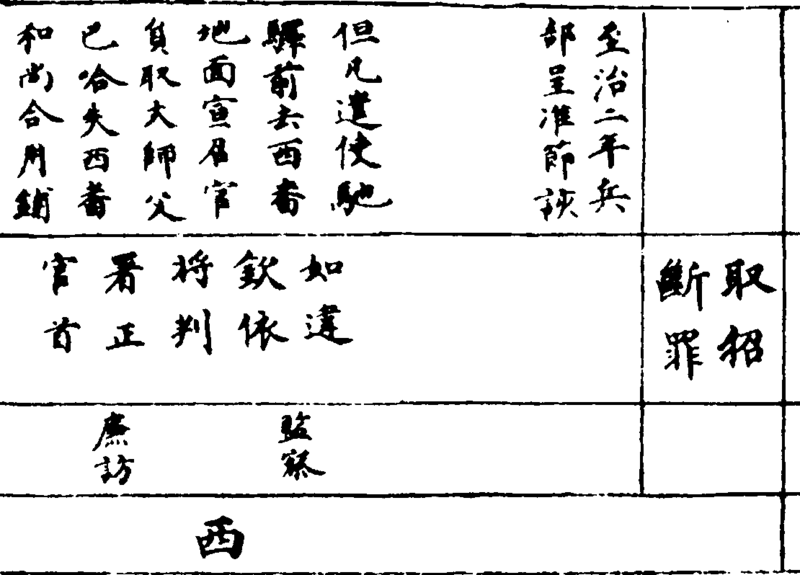 至治二年兵
部呈准節該
但凡遣使馳
驛前去西番
地面宣召官
負取大師父
巴哈失西番
和尚合用鋪
取招
斷罪
如違
欽依
将判
署正
官首
監察
廉訪
西